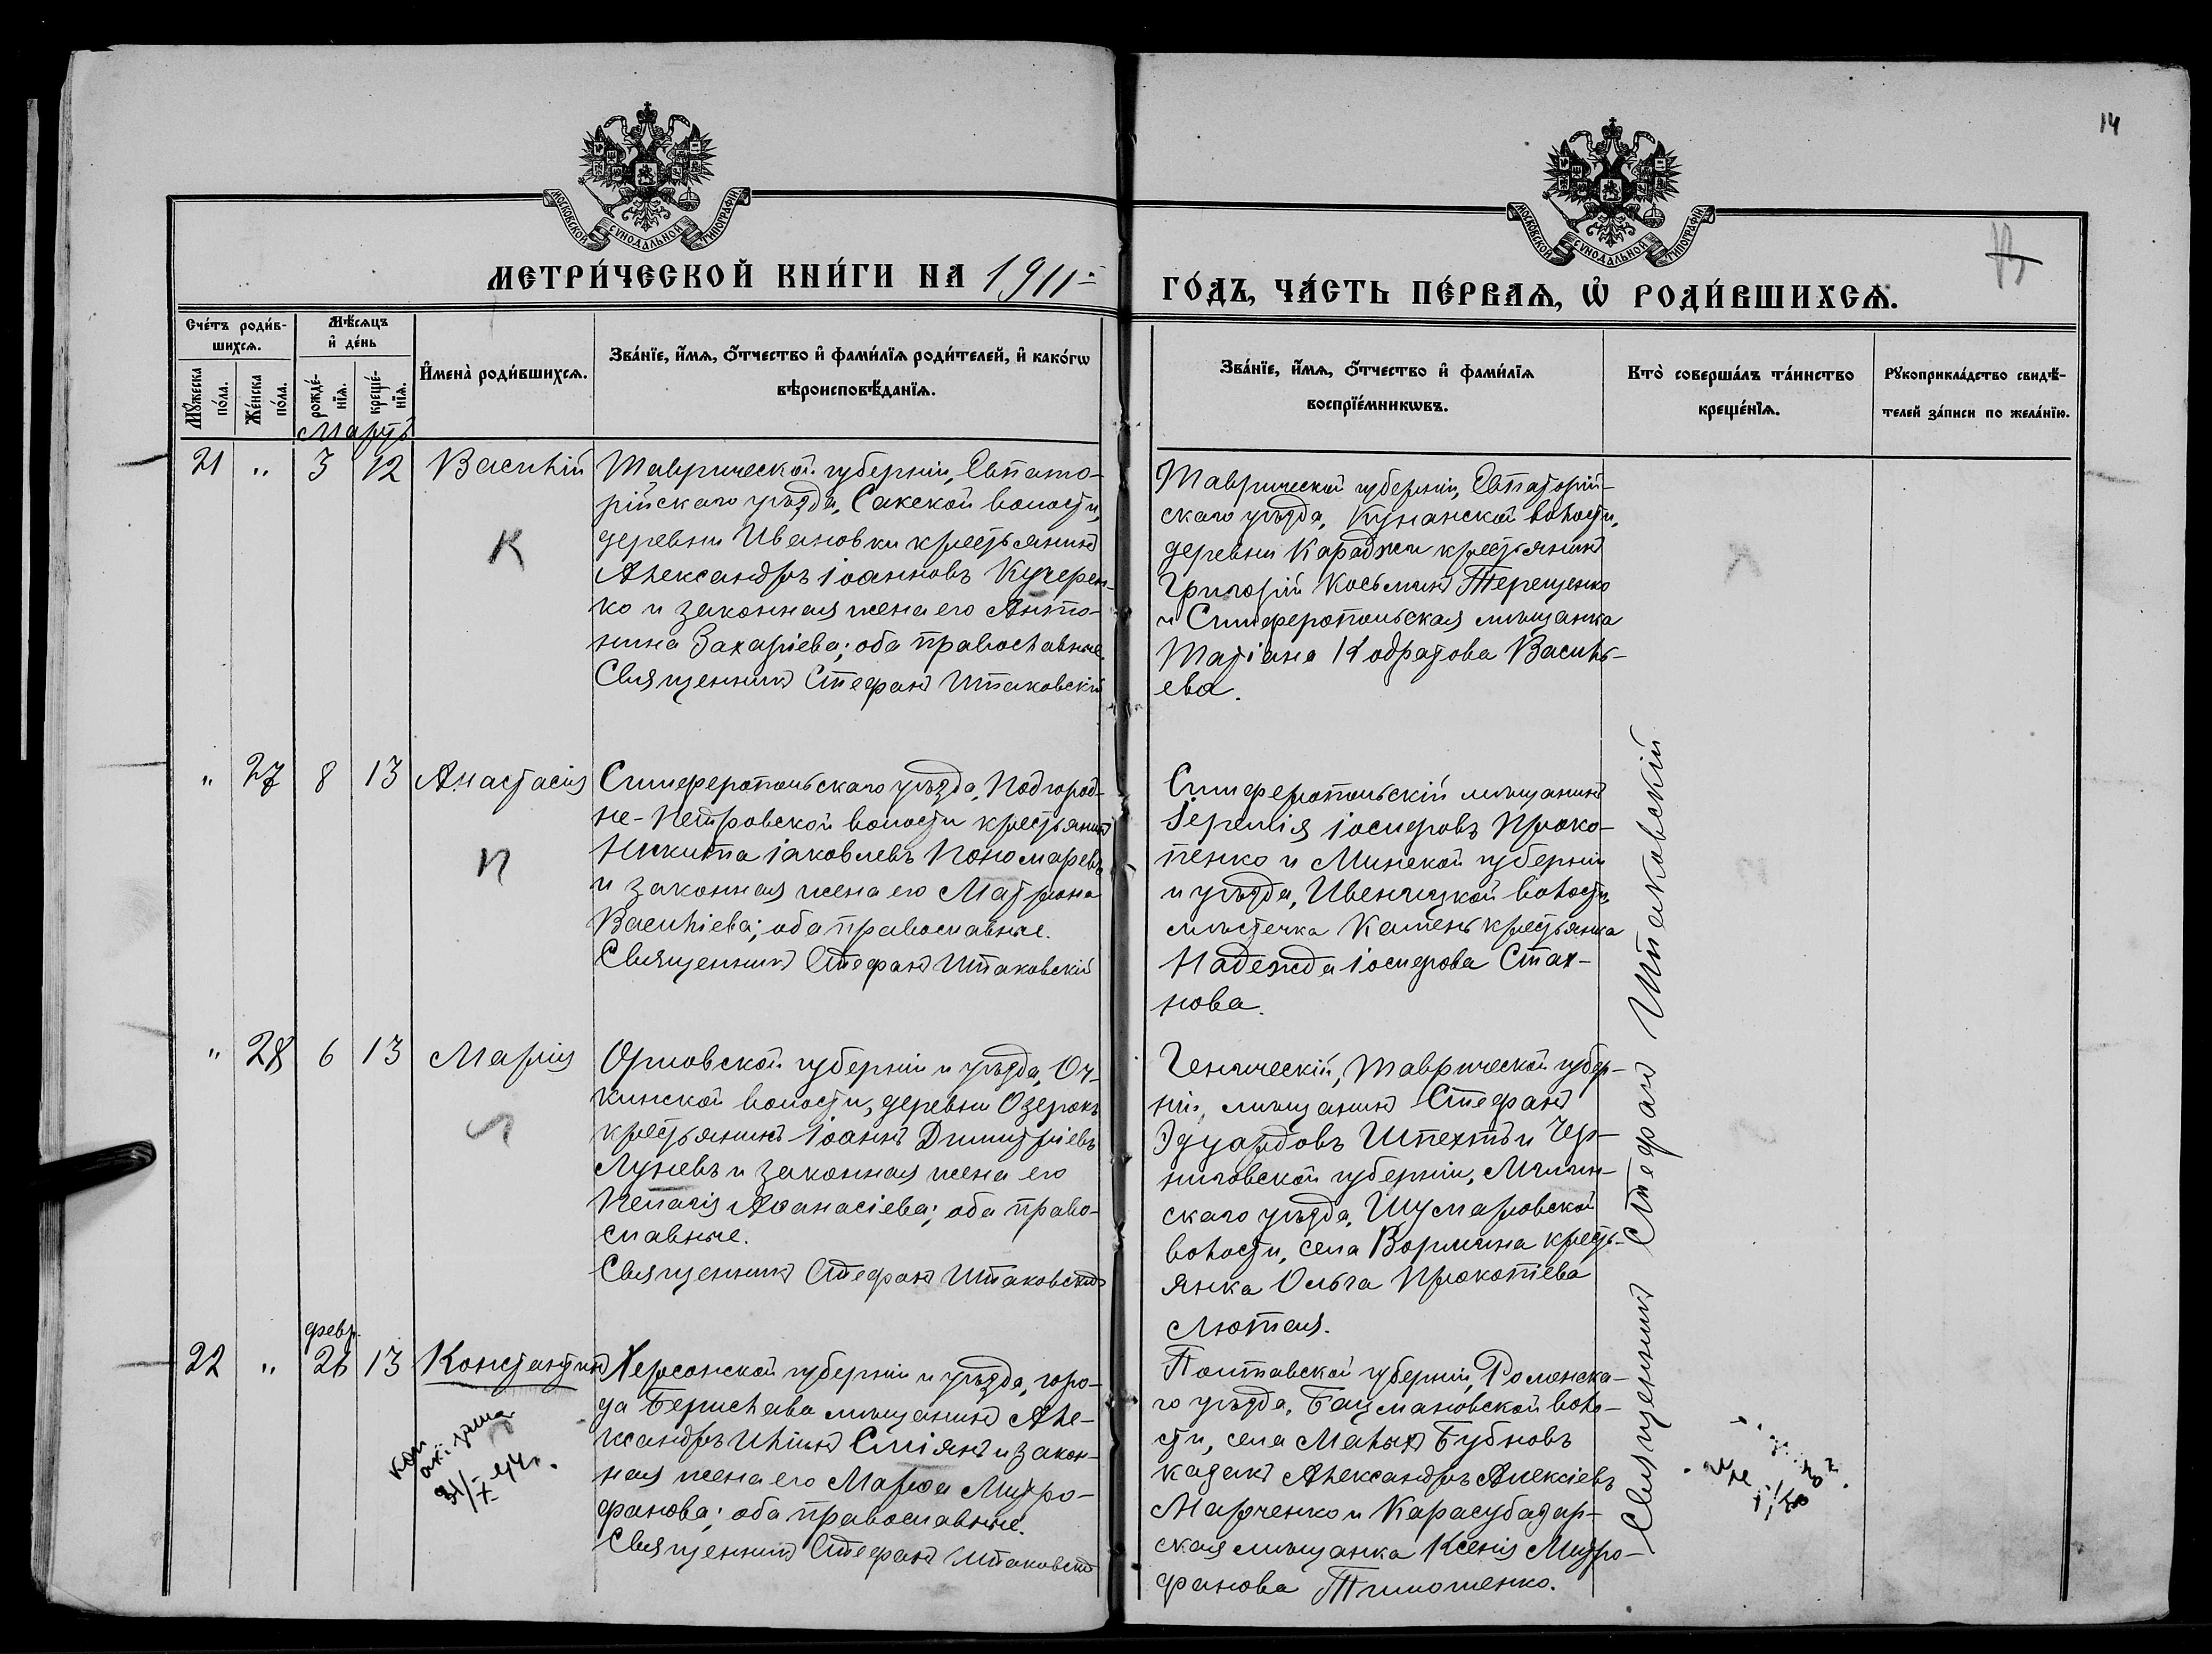 14
МОСКОВСКОЙ СУНОДАЛЬНОЙ ТИПОГРАФІИ
МОСКОВСКОЙ СУНОДАЛЬНОЙ ТИПОГРАФІИ
МЕТРИ́ЧЕСКОЙ КНИ́ГИ НА 1911
ГО́ДЪ, ЧА́СТЬ ПЕ́РВАѦ, Ѡ҆ РОДИ́ВШИХСѦ.
Сче́тъ роди́в-
шихсѧ.
Мꙋ́жеска по́ла.
Же́нска по́ла.
Мѣ́сѧцъ
и҆ де́нь
рожде́-
нїѧ.
креще́-
нїѧ.
И҆мена̀ роди́вшихсѧ.
Зва́нїе, и҆́мѧ, ѻ҆́тчество и҆ фами́лїѧ роди́телей, и҆ како́гѡ
вѣроисповѣ́данїѧ.
Зва́нїе, и҆́мѧ, ѻ҆́тчество и҆ фами́лїѧ
воспрїе́мникѡвъ.
Кто̀ соверша́лъ та́инство
креще́нїѧ.
Рꙋкоприкла́дство свидѣ́-
телей за́писи по жела́нїю.
Мартъ
21 " 3 12 Василій
К
Таврической губерніи, Евпато-
рійскаго уѣзда, Сакской волости,
деревни Ивановки крестьянинъ
Александръ Іоанновъ Кучерен-
ко и законная жена его Анто-
нина Захаріева; оба православные.
Священникъ Стефанъ Шпаковскій
Таврической губерніи, Евпаторій-
скаго уѣзда, Кунанской волости,
деревни Караджи крестьянинъ
Григорій Косьминъ Терещенко
и Симферопольская мѣщанка
Татіана Кодратова Василь-
ева.
" 27 8 13 Анастасія
П
Симферопольскаго уѣзда, Подгород-
не-Петровской волости крестьянинъ
Никита Іаковлевъ Пономаревъ
и законная жена его Матрона
Василіева; оба православные.
Священникъ Стефанъ Шпаковскій
Симферопольскій мѣщанинъ
Іеремія Іосифовъ Проко-
пенко и Минской губерніи
и уѣзда, Ивеницкой волости,
мѣстечка Камень крестьянка
Надежда Іосифова Стах-
нова.
" 28 6 13 Марія
Л
Орловской губерніи и уѣзда, Оч-
кинской волости, деревни Озерокъ
крестьянинъ Іоаннъ Димитріевъ
Луневъ и законная жена его
Пелагія Аѳанасіева; оба право-
славные.
Священникъ Стефанъ Шпаковскій
Геническій, Таврической губер-
ніи, мѣщанинъ Стефанъ
Эдуардовъ Шпехтъ и Чер-
ниговской губерніи, Мглин-
скаго уѣзда, Шумаровской
волости, села Вормина кресть-
янка Ольга Прокопіева
Лютая.
февр.
22 " 26 13 Константинъ
31/X 94г.
Херсонской губерніи и уѣзда, горо-
да Берислава мѣщанинъ Але-
ксандръ Иліинъ Сміянъ и закон-
ная жена его Марѳа Митро-
фанова; оба православные.
Священникъ Стефанъ Шпаковскій
Полтавской губерніи, Роменска-
го уѣзда, Бацмановской воло-
сти, села Малыхъ Бубновъ
казакъ Александръ Алексіевъ
Марченко и Карасубазар-
ская мѣщанка Ксенія Митро-
фанова Тимошенко.
Священникъ Стефанъ Шпаковскій